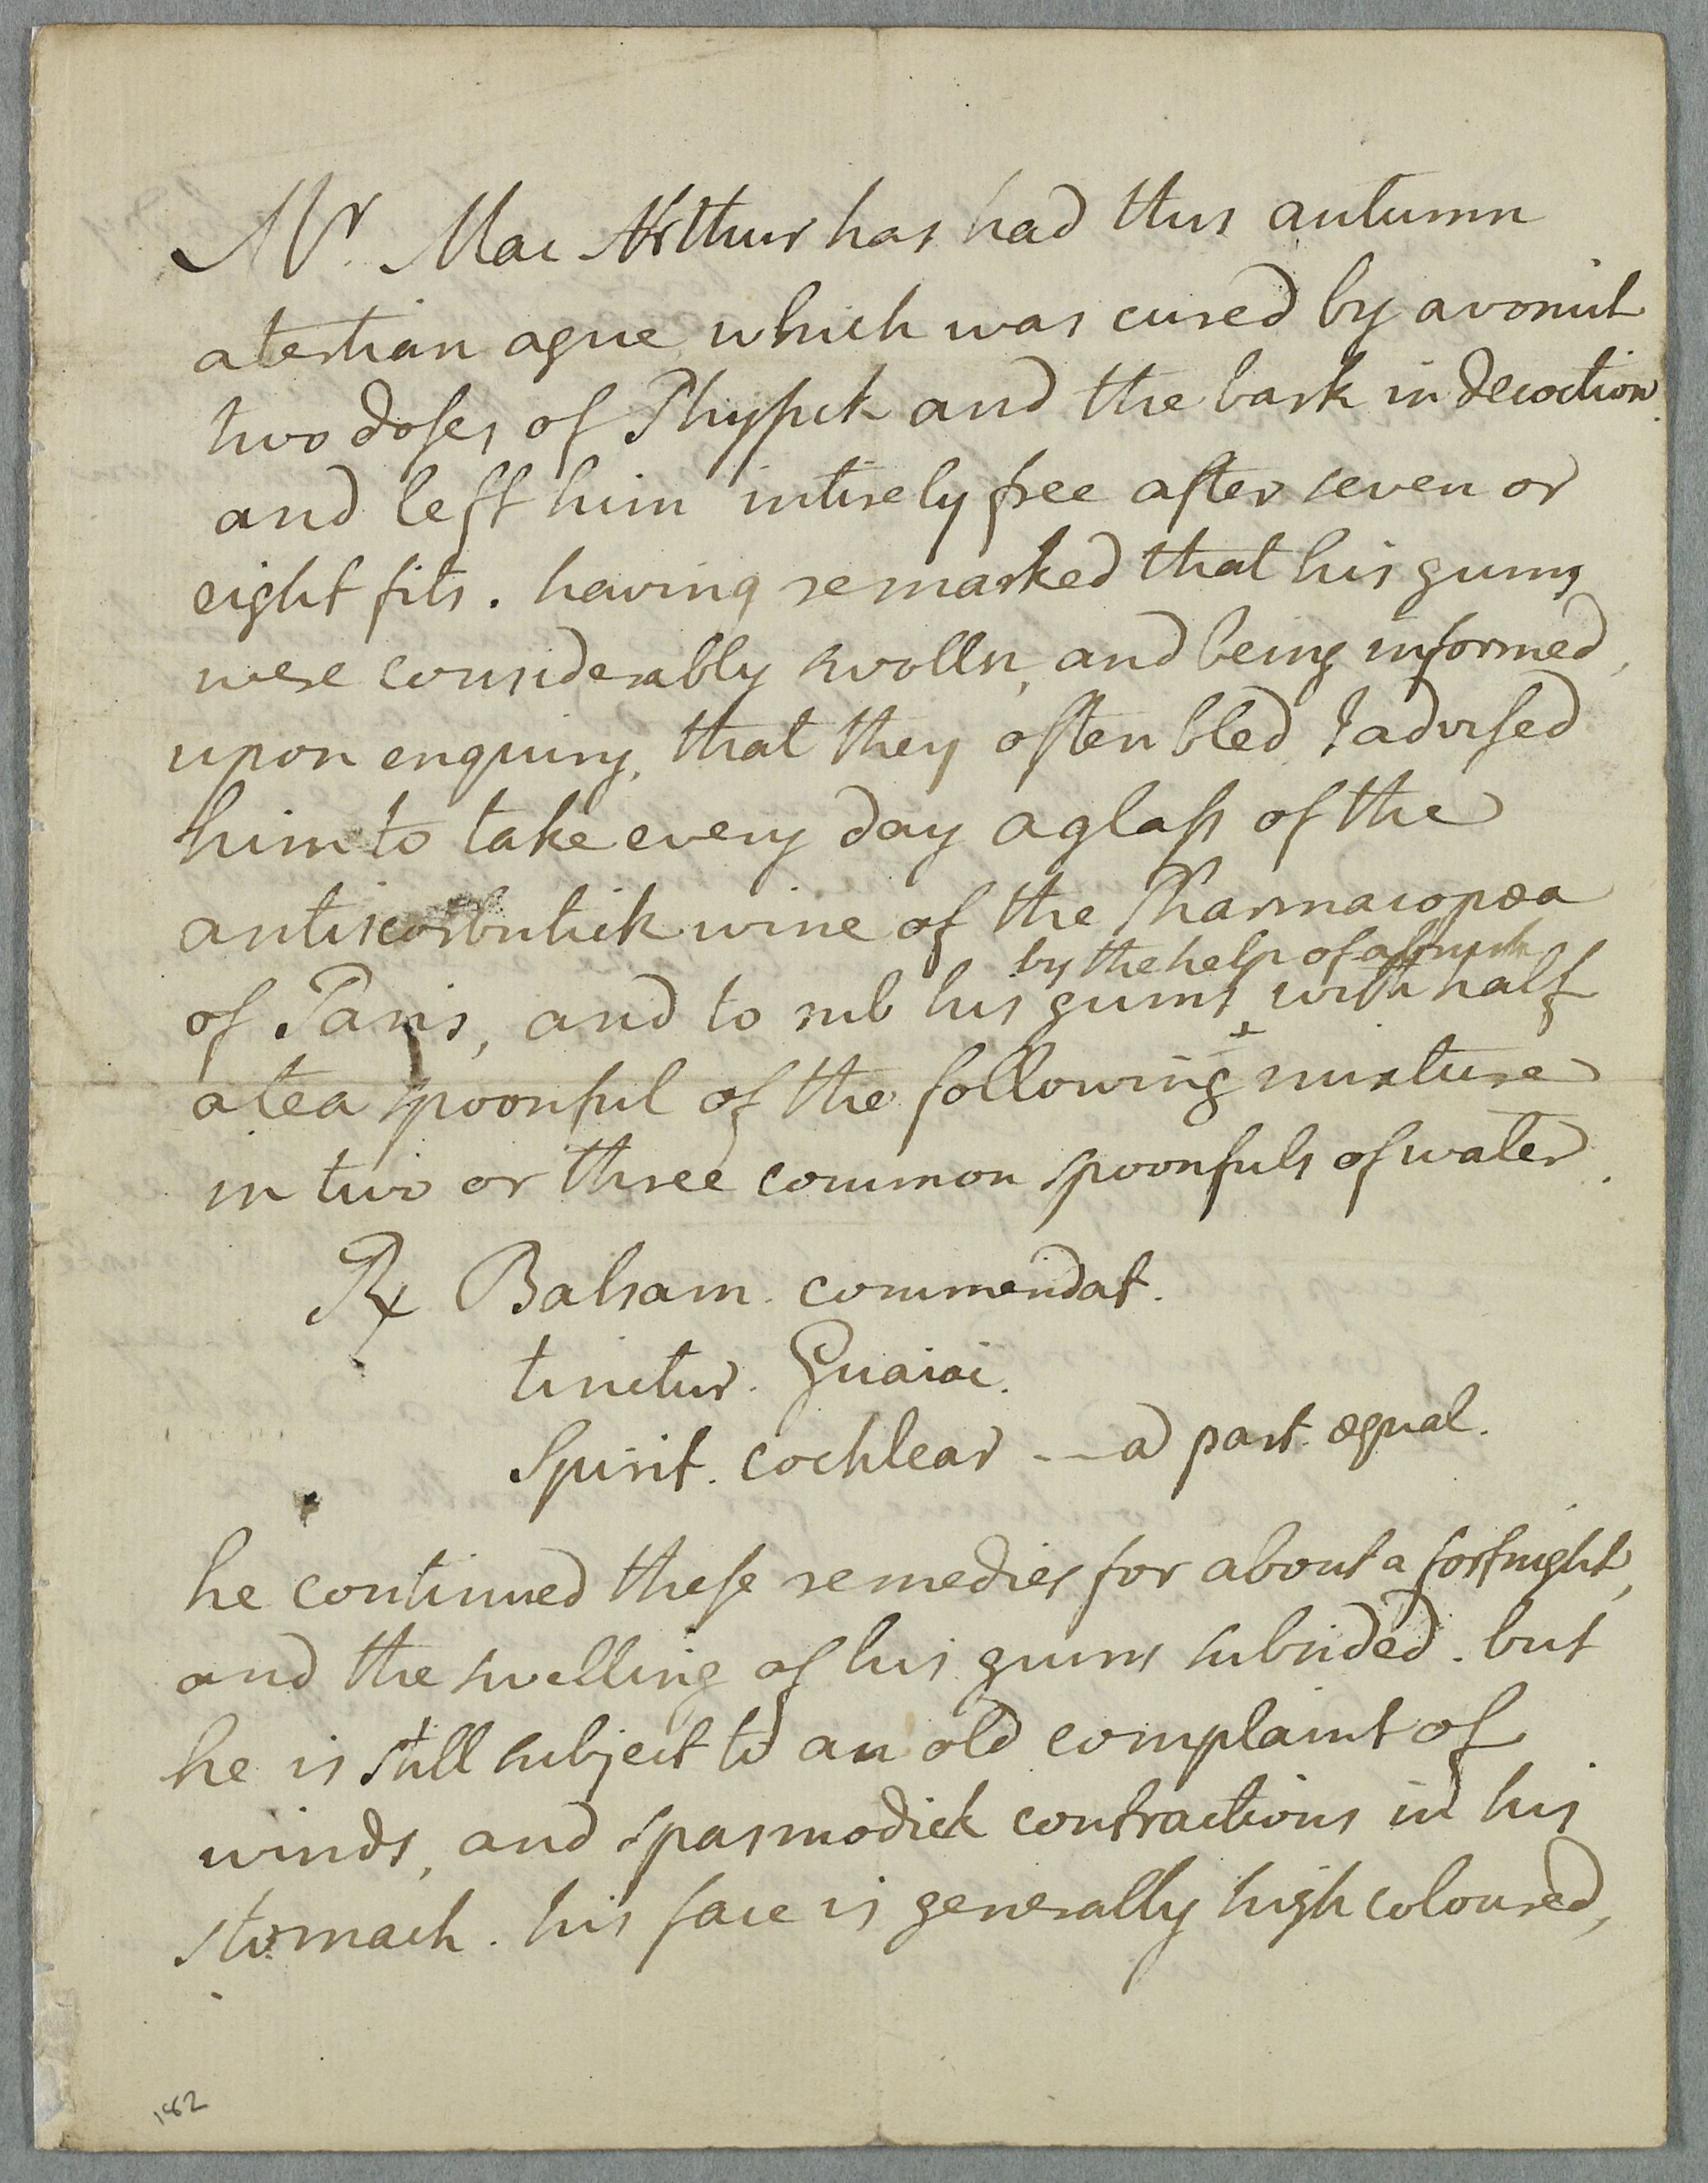 Mr. Mac Arthur has had this autumn
a tertian ague which was cured by a vomit
two doses of Physick and the bark in decoction.
and left him intirely free after seven or
eight fits. having remarked that his gums
were considerably swolln, and being informed,
upon enquiry, that they often bled, I advised
him to take every day a glass of the
antiscorbutick wine of the Pharmacopœa
by the help of a brush
of Paris, and to rub his gums, with half
a tea spoonful of the following + mixture
in two or three common spoonfuls of water.
Rx Balsam. commendat.
tinctur. Guaiac.
Spirit. cochlear --- a part. æqual.
he continued these remedies for about a fortnight,
and the swelling of his gums subsided. but
he is still subject to an old complaint of
winds, and spasmodick contractions in his
stomach. his face is generally high coloured,
182